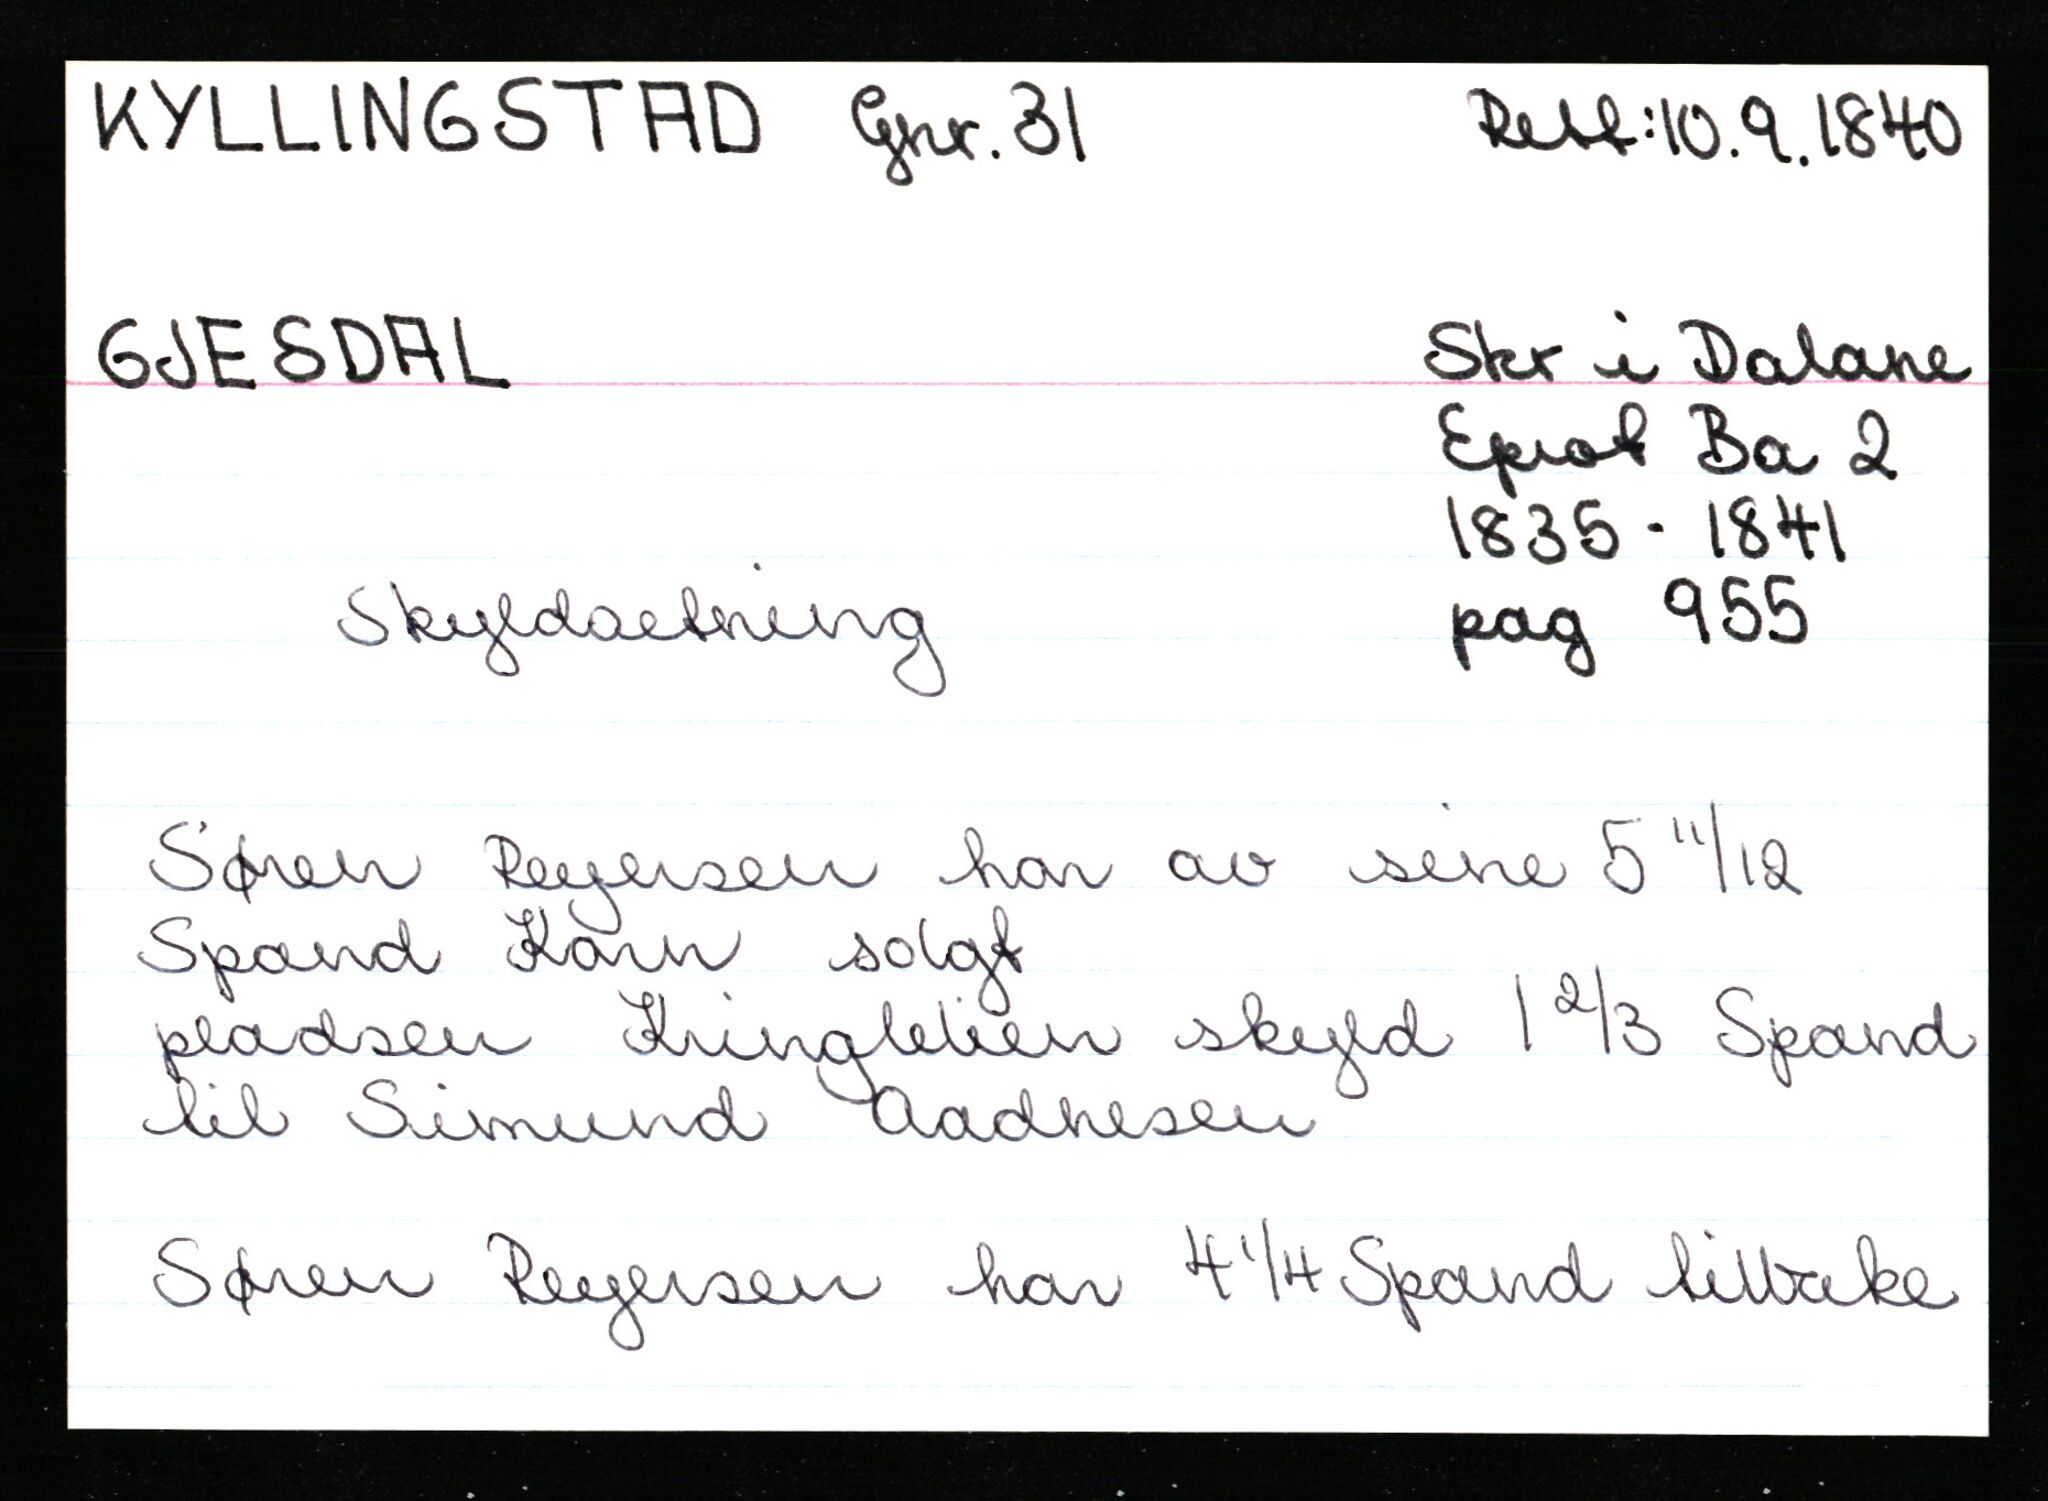 KYLLINGSTAD Gnr. 31 Rett: 10.9.1840
GJESDAL Skr i Dalane
Eprot Ba 2
1835 - 1841
Skyldsetning pag 955
Søren Reyersen har av sine 5 11/12
Spand Korn solgt
pladsen Kringlelien skyld 1 2/3 Spand
til Simund Aadnesen
Søren Reyersen har 4 1/4 Spand tilbake